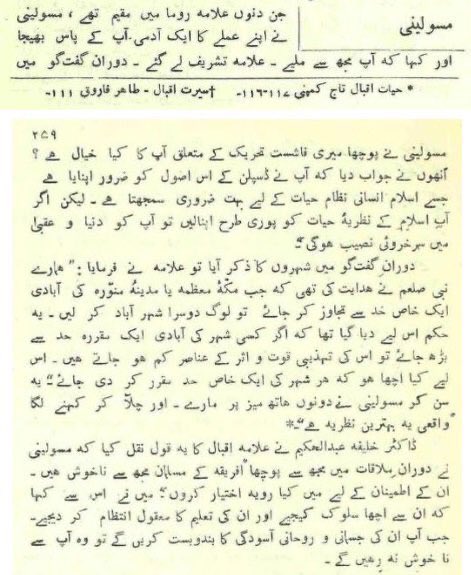 مسولینی
جن دنوں علامہ روما میں مقیم تھے ، مسولینی
نے اپنے عملے کا ایک آدمی آپ کے پاس بھیجا
اور کہا کہ آپ مجھ سے ملیے ۔ علامہ تشریف لے گئے ۔ دوران گفت‌گو میں
* حیات اقبال تاج کمپنی ۱۱۷-۱۱۶۔ †سیرت اقبال - طاہر فاروقی ۱۱۱-
۲۵۹
مسولینی نے پوچھا میری فاشست تحریک کے متعلق آپ کا کیا خیال ہے ؟
اُنھوں نے جواب دیا کہ آپ نے ڈسپلن کے اس اصول کو ضرور اپنایا ہے
جسے اسلام انسانی نظام حیات کے لیے بہت ضروری سمجھتا ہے ۔ لیکن اگر
آپ اسلام کے نظریۂ حیات کو پوری طرح اپنالیں تو آپ کو دنیا و عقبیٰ
میں سرخروئی نصیب ہوگی“۔
دوران گفت‌گو میں شہروں کا ذکر آیا تو علامہ نے فرمایا : ”ہمارے
نبی صلعم نے ہدایت کی تھی کہ جب مکۂ معظمہ یا مدینۂ منورہ کی آبادی
ایک خاص حد سے تجاوز کر جائے تو لوگ دوسرا شہر آباد کر لیں ۔ یہ
حکم اس لیے دیا گیا تھا کہ اگر کسی شہر کی آبادی ایک مقررہ حد سے
بڑھ جائے تو اس کی تہذیبی قوت و اثر کے عناصر کم ہو جاتے ہیں ۔ اس
لیے کیا اچھا ہو کہ ہر شہر کی ایک خاص حد مقرر کر دی جائے“۔ یہ
سن کر مسولینی نے دونوں ہاتھ میز پر مارے ۔ اور چلّا کر کہنے لگا
”واقعی یہ بہترین نظریہ ہے“۔*
ڈاکٹر خلیفہ عبدالحکیم نے علامہ اقبال کا یہ قول نقل کیا کہ مسولینی
نے دوران ملاقات میں مجھ سے پوچھا ”افریقہ کے مسلمان مجھ سے ناخوش ہیں ۔
ان کے اطمینان کے لیے میں کیا رویہ اختیار کروں“۔ میں نے اس سے کہا
کہ ان سے اچھا سلوک کیجیے اور ان کی تعلیم کا معقول انتظام کر دیجیے۔
جب آپ ان کی جسمانی و روحانی آسودگی کا بندوبست کریں گے تو وہ آپ سے
نا خوش نہ رہیں گے ۔